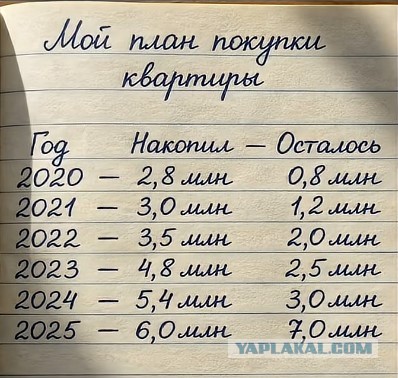 Мой план покупки
квартиры
Год Накопил — Осталось
2020 — 2,8 млн 0,8 млн
2021 — 3,0 млн 1,2 млн
2022 — 3,5 млн 2,0 млн
2023 — 4,8 млн 2,5 млн
2024 — 5,4 млн 3,0 млн
2025 — 6,0 млн 7,0 млн
YAPLAKAL.COM